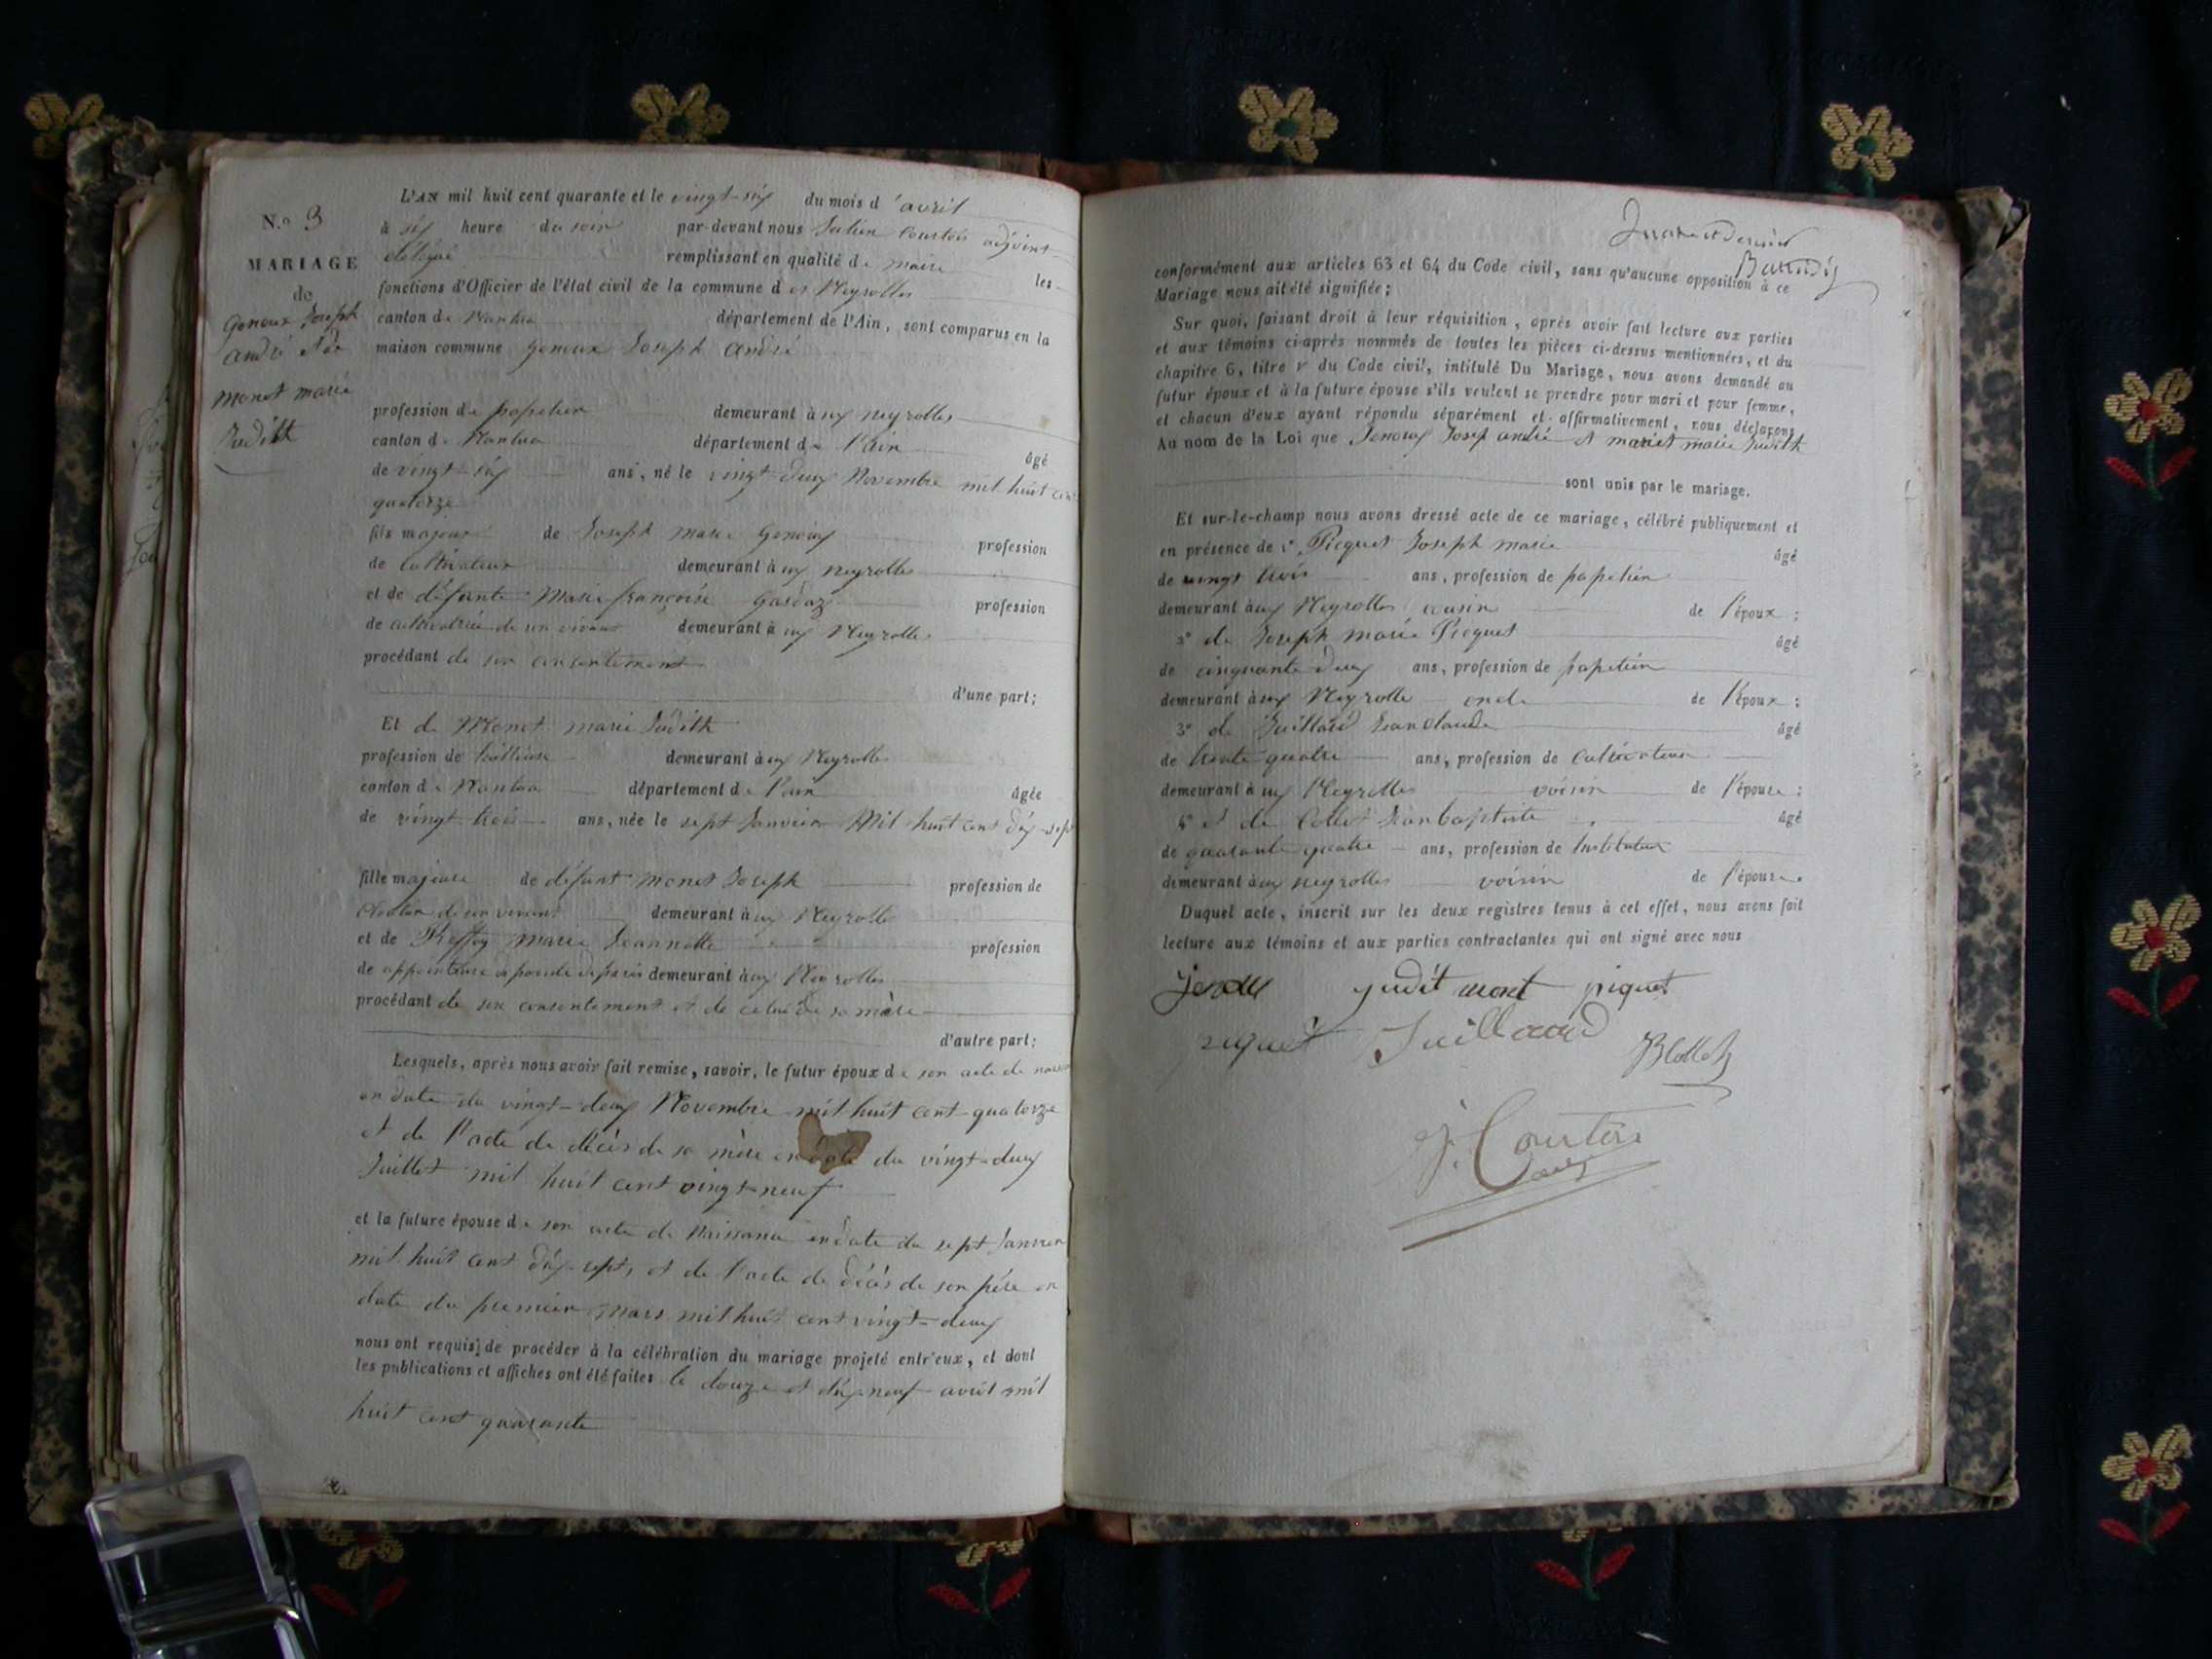 N.o 3
MARIAGE
de
Genoux Joseph
andré et de
Monet marie
Judith
L'AN mil huit cent quarante et le vingt-six du mois d'avril
à six heure du soir par-devant nous Julien Courtois adjoint
délégué remplissant en qualité de maire les
fonctions d'Officier de l'état civil de la commune des Neyrolles
canton de Nantua département de l'Ain, sont comparus en la
maison commune Genoux Joseph andré
profession de papetier demeurant aux neyrolles
canton de Nantua département de l'ain âgé
de vingt-six ans, né le vingt-deux Novembre mil huit cent
quatorze
fils majeur de Joseph marie Genoux profession
de Cultivateur demeurant aux neyrolles
et de défunte Marie françoise profession
de cultivatrice de son vivant demeurant aux Neyrolles
procédant de son consentement
d'une part;
Et de Monet marie Judith
profession de demeurant aux Neyrolles
canton de Nantua département de l'ain âgée
de vingt-trois ans, née le sept Janvier Mil huit cent dix-sept
fille majeure de défunt monet Joseph profession de
de son vivant demeurant aux Neyrolles
et de marie Jeannette profession
de demeurant aux Neyrolles
procédant de son consentement et de celui de sa mère
d'autre part:
Lesquels, après nous avoir fait remise, savoir, le futur époux de son acte de
en date du vingt-deux Novembre mil huit cent quatorze
et de l'acte de décès de sa mère en date du vingt-deux
Juillet mil huit cent vingt-neuf
et la future épouse de son acte de Naissance en date du sept Janvier
mil huit cent dix-sept, et de l'acte de décès de son père en
date du premier mars mil huit cent vingt-deux
nous ont requis de procéder à la célébration du mariage projeté entr'eux, et dont
les publications et affiches ont été faites le douze et dix-neuf avril mil
huit cent quarante
conformément aux articles 63 et 64 du Code civil, sans qu'aucune opposition à ce
Mariage nous ait été signifiée;
Sur quoi, faisant droit à leur réquisition, après avoir fait lecture aux parties
et aux témoins ci-après nommés de toutes les pièces ci-dessus mentionnées, et du
chapitre 6, titre v du Code civil, intitulé Du Mariage, nous avons demandé au
futur époux et à la future épouse s'ils veulent se prendre pour mari et pour femme,
et chacun d'eux ayant répondu séparément et affirmativement, nous déclarons
Au nom de la Loi que Genoux Josep andré et monet marie Judith
sont unis par le mariage.
Et sur-le-champ nous avons dressé acte de ce mariage, célébré publiquement et
en présence de 1° Picquet Joseph marie âgé
de vingt trois ans, profession de papetier
demeurant aux Neyrolles cousin de l'époux;
2° de Joseph marie Picquet âgé
de cinquante deux ans, profession de papetier
demeurant aux Neyrolle oncle de l'époux;
3° de Juillard Jean Claude âgé
de trente quatre ans, profession de Cultivateur
demeurant aux Neyrolles voisin de l'épouse;
4° et de Collet Jean baptiste âgé
de quarante quatre ans, profession de Instituteur
demeurant aux neyrolles voisin de l'épouse.
Duquel acte, inscrit sur les deux registres tenus à cet effet, nous avons fait
lecture aux témoins et aux parties contractantes qui ont signé avec nous
judit monet piquet
Juillard
JBCollet
J. Courtois